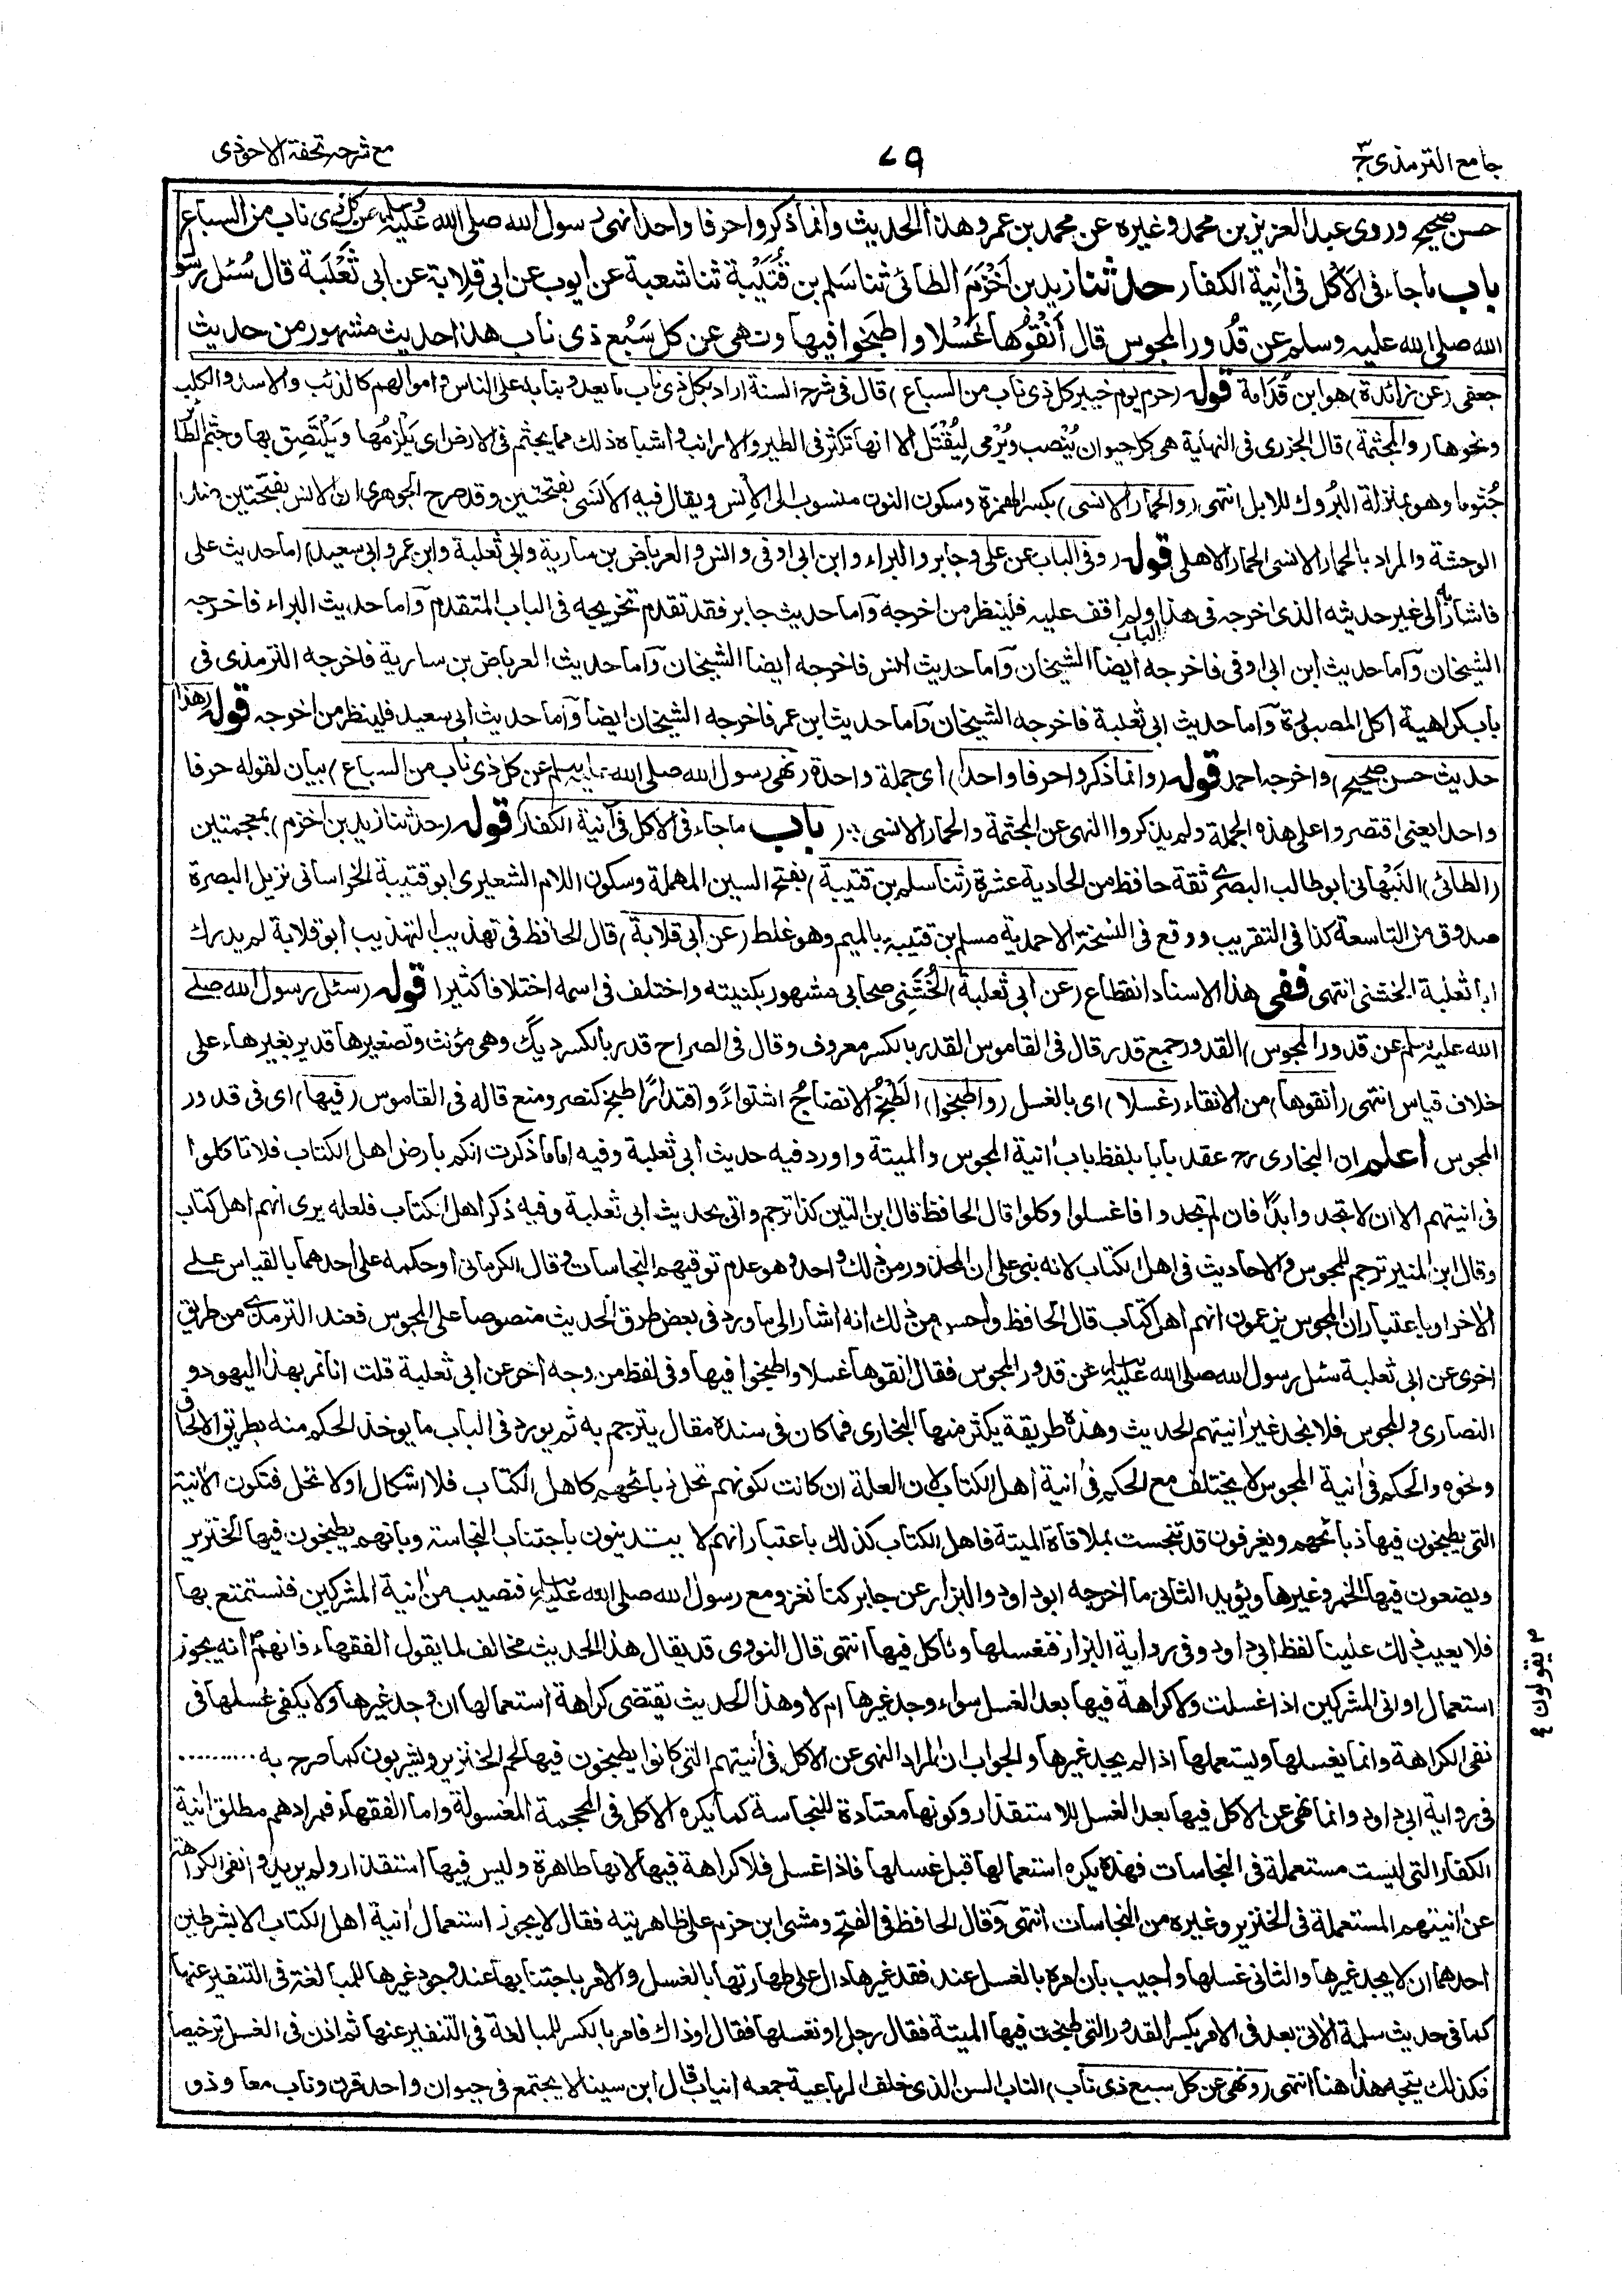 جامع الترمذى ج٣
٧٩
مع شرحه تحفة الاحوذى
حسن صحيح وروى عبد العزيز بن محمد وغيره عن محمد بن عمرو هذا الحديث وانما ذكروا حرفا واحدا نهى رسول الله صلى الله عليه وسلم عن كل ذى ناب من السباع
باب ما جاء فى الاكل فى اٰنِية الكفار حدثنا زيد بن اَخْزَمَ الطائى ثنا سَلم بن قُتَيْبة ثنا شعبة عن ايوب عن ابى قِلابة عن ابى ثَعْلَبة قال سُئل رسول
الله صلى الله عليه وسلم عن قُدُور المجوس قال اَنْقُوها غَسْلا واطبَخوا فيها ونهى عن كل سَبُع ذى ناب هذا حديث مشهور من حديث
جعفى (عن زائدة) هو ابن قُدَامة قوله (حرم يوم خيبر كل ذى ناب من السباع) قال فى شرح السنة اراد بكل ذى ناب ما يعدو بنابه على الناس واموالهم كالذئب والاسد والكلب
ونحوها (والمجثمة) قال الجزرى فى النهاية هى كل حيوان يُنْصب ويُرْمى لِيُقْتَل الا انها تكثر فى الطير والارانب واشباه ذلك مما يجثم فى الارض اى يَلْزمُها ويَلْتَصِق بها وجثم الطائر
جُثوما وهو بمنزلة البُروك للابل انتهى (والحمار الانسى) بكسر الهمزة وسكون النون منسوب الى الانس ويقال فيه الاَنَسى بفتحتين وقد صرح الجوهرى ان الانس بفتحتين ضد
الوحشة والمراد بالحمار الانسى الحمار الاهلى قوله (وفى الباب عن على وجابر والبراء وابن ابى اوفى وانس والعرباض بن سارية وابى ثعلبة وابن عمر وابى سعيد) اما حديث على
فاشار به الى غير حديثه الذى اخرجه فى هذا الباب ولم اقف عليه فلينظر من اخرجه واما حديث جابر فقد تقدم تخريجه فى الباب المتقدم واما حديث البراء فاخرجه
الشيخان واما حديث ابن ابى اوفى فاخرجه ايضا الشيخان واما حديث انس فاخرجه ايضا الشيخان واما حديث العرباض بن سارية فاخرجه الترمذى فى
باب كراهية اكل المصبورة واما حديث ابى ثعلبة فاخرجه الشيخان واما حديث ابن عمر فاخرجه الشيخان ايضا واما حديث ابى سعيد فلينظر من اخرجه قوله (هذا
حديث حسن صحيح) واخرجه احمد قوله (وانما ذكروا حرفا واحدا) اى جملة واحدة (نهى رسول الله صلى الله عليه وسلم عن كل ذى ناب من السباع) بيان لقوله حرفا
واحدا يعنى اقتصروا على هذه الجملة ولم يذكروا النهى عن المجثمة والحمار الانسى (باب ما جاء فى الاكل فى آنية الكفار) قوله (حدثنا زيد بن اخزم) بمعجمتين
(الطائى) النَبْهانى ابو طالب البصرى ثقة حافظ من الحادية عشرة (ثنا سلم بن قتيبة) بفتح السين المهملة وسكون اللام الشعيرى ابو قتيبة الخراسانى نزيل البصرة
صدوق من التاسعة كذا فى التقريب ووقع فى النسخة الاحمدية مسلم بن قتيبة بالميم وهو غلط (عن ابى قلابة) قال الحافظ فى تهذيب التهذيب ابو قلابة لم يدرك
ابا ثعلبة الخشنى انتهى ففى هذا الاسناد انقطاع (عن ابى ثعلبة) الخُشَنِى صحابى مشهور بكنيته واختلف فى اسمه اختلافا كثيرا قوله (سئل رسول الله صلى
الله عليه وسلم عن قدور المجوس) القدور جمع قدر قال فى القاموس القدر بالكسر معروف وقال فى الصراح قدر بالكسر ديگ وهى مؤنث وتصغيرها قدير بغير هاء على
خلاف قياس انتهى (انقوها) من الانقاء (غسلا) اى بالغسل (واطبخوا) الطَبْخُ الانضاجُ اشتواءً واقتدارًا طبخ كنصر ومنع قاله فى القاموس (فيها) اى فى قدور
المجوس اعلم ان البخارى رح عقد بابا بلفظ باب انية المجوس والميتة واورد فيه حديث ابى ثعلبة وفيه اما ما ذكرت انكم بارض اهل الكتاب فلا تاكلوا
فى انيتهم الا ان لا تجدوا بدًا فان لم تجدوا فاغسلوا وكلوا قال الحافظ قال ابن التين كذا ترجم واتى بحديث ابى ثعلبة وفيه ذكر اهل الكتاب فلعله يرى انهم اهل كتاب
وقال ابن المنير ترجم للمجوس والاحاديث فى اهل الكتاب لانه بنى على ان المحذور من ذلك واحد وهو عدم توقيهم النجاسات وقال الكرمانى او حكمه على احدهما بالقياس على
الاٰخر او باعتبار ان المجوس يزعمون انهم اهل كتاب قال الحافظ واحسن من ذلك انه اشار الى ما ورد فى بعض طرق الحديث منصوصا على المجوس فعند الترمذى من طريق
اخرى عن ابى ثعلبة سئل رسول الله صلى الله عليه وسلم عن قدور المجوس فقال انقوها غسلا واطبخوا فيها وفى لفظ من وجه اٰخر عن ابى ثعلبة قلت انا نمر بهذا اليهود و
النصارى والمجوس فلا نجد غير اٰنيتهم الحديث وهذه طريقة يكثر منها البخارى فما كان فى سنده مقال يترجم به ثم يورد فى الباب ما يوخذ الحكم منه بطريق الالحاق
ونحوه والحكم فى اٰنية المجوس لا يختلف مع الحكم فى اٰنية اهل الكتاب لان العلة ان كانت لكونهم تحل ذبائحهم كاهل الكتاب فلا اشكال او لا تحل فتكون الاٰنية
التى يطبخون فيها ذبائحهم ويغرفون قد تنجست بملاقاة الميتة فاهل الكتاب كذلك باعتبار انهم لا يتدينون باجتناب النجاسة وبانهم يطبخون فيها الخنزير
ويضعون فيها الخمر وغيرها ويؤيد الثانى ما اخرجه ابو داود والبزار عن جابر كنا نغزو مع رسول الله صلى الله عليه وسلم فنصيب من اٰنية المشركين فنستمتع بها
فلا يعيب ذلك علينا لفظ ابى داود وفى رواية البزار فنغسلها وناكل فيها انتهى قال النووى قد يقال هذا الحديث مخالف لما يقول الفقهاء فانهم انه يجوز
استعمال اوانى المشركين اذا غسلت ولا كراهة فيها بعد الغسل سواء وجد غيرها ام لا وهذا الحديث يقتضى كراهة استعمالها ان وجد غيرها ولا يكفى غسلها فى
نفى الكراهة وانما يغسلها ويستعملها اذا لم يجد غيرها والجواب ان المراد النهى عن الاكل فى اٰنيتهم التى كانوا يطبخون فيها لحم الخنزير ويشربون كما صرح به ..........
فى رواية ابى داود وانما نهى عن الاكل فيها بعد الغسل للاستقذار وكونها معتادة للنجاسة كما يكره الاكل فى المحجمة المغسولة واما الفقهاء فمرادهم مطلق اٰنية
الكفار التى ليست مستعملة فى النجاسات فهذه يكره استعمالها قبل غسلها فاذا غسل فلا كراهة فيها لانها طاهرة وليس فيها استقذار ولم يريدوا نفى الكراهة
عن اٰنيتهم المستعملة فى الخنزير وغيره من النجاسات انتهى وقال الحافظ فى الفتح ومشى ابن حزم على ظاهريته فقال لا يجوز استعمال اٰنية اهل الكتاب الا بشرطين
احدهما ان لا يجد غيرها والثانى غسلها واجيب بان امره بالغسل عند فقد غيرها دال على طهارتها بالغسل والامر باجتنابها عند وجود غيرها للمبالغة فى التنفير عنها
كما فى حديث سلمة الاٰتى بعد فى الامر بكسر القدور التى طبخت فيها الميتة فقال رجل او نغسلها فقال او ذاك فامر بالكسر للمبالغة فى التنفير عنها ثم اذن فى الغسل ترخيصا
فكذلك يتجه هذا هنا انتهى (ونهى عن كل سبع ذى ناب) الناب السن الذى خلف الرباعية جمعه انياب قال ابن سينا لا يجتمع فى حيوان واحد قرن وناب معا وذو
٢ يقولون ٤